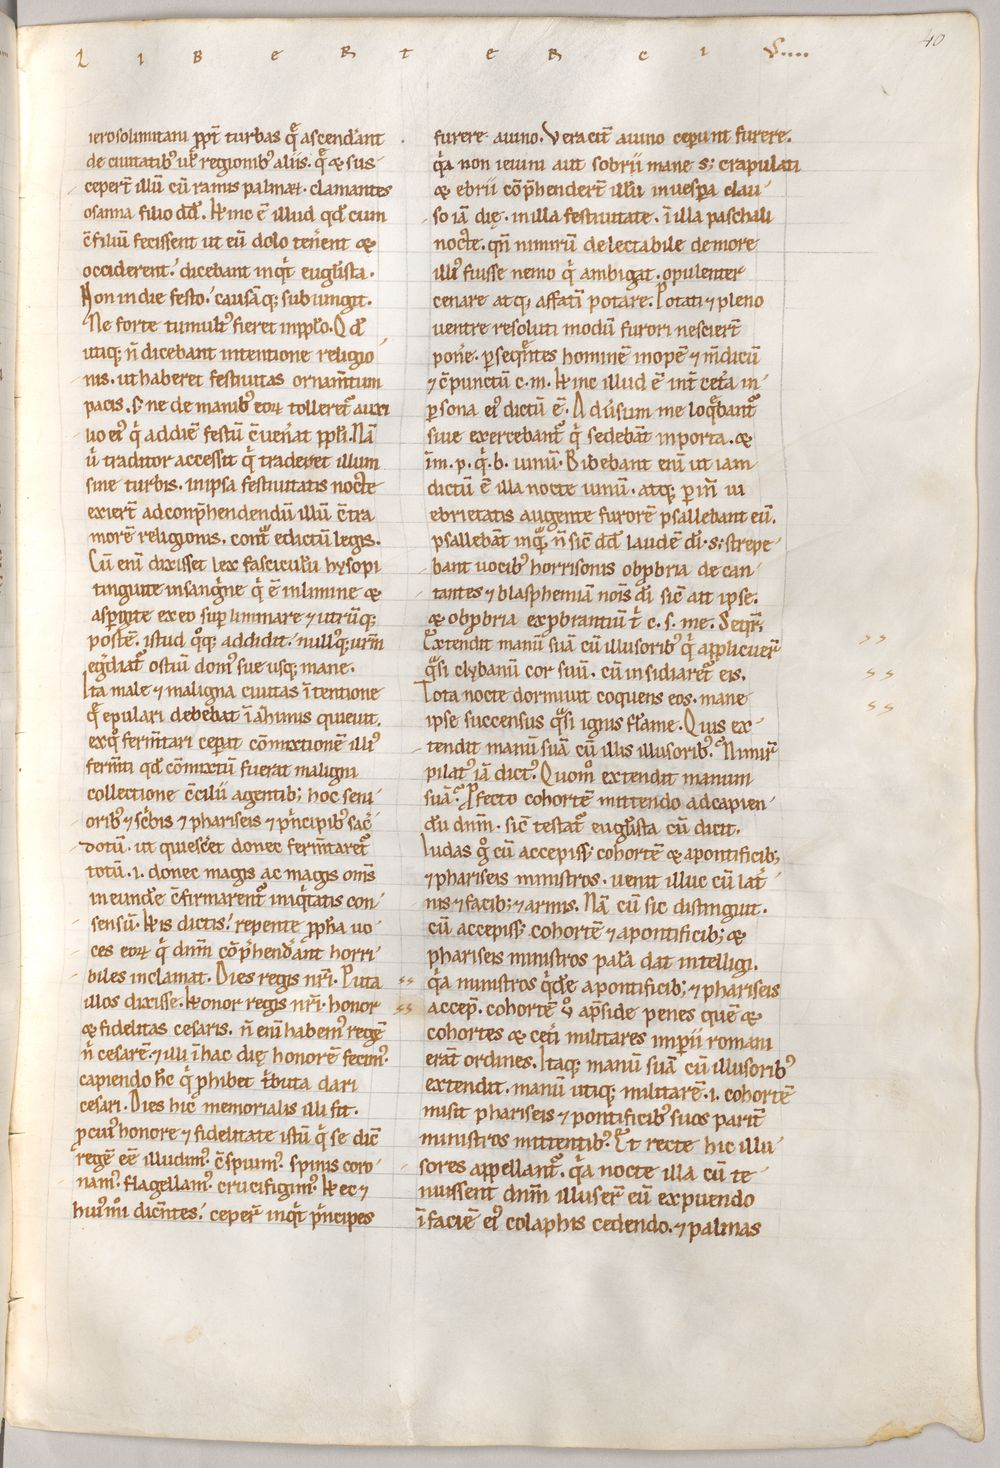 LIBER TERCI V....
40
ierosolimitani ꝓpt̄ turbas q̄ ascend̄ant
de ciuitatib⁹ ul̓ regionib⁹ aliis. q̄ & sus
cepert̄ illū cū ramis palmaꝝ. clamantes
osanna filio dd̄. Hinc ē illud qd̄ cum
c̄siliū fecissent ut eū dolo ten̄ent &
occiderent. dicebant inqt̄ euglista.
Non in die festo. causāq; subiungit.
Ne forte tumult⁹ fieret in ppl̄o. Qd̄
utiq; n̄ dicebant intentione religio
nis. ut haberet festiuitas ornam̄tum
pacis. s; ne de manib⁹ eoꝝ tolleret᷑ auxi
lio ei⁹ q̄ ad diē festū c̄uen̄at ppl̄i. Nā
ū traditor accessit q̄ traderet illum
sine turbis. in ipsa festiuitatis nocte
exiert̄ ad conp̄hendendū illū c̄tra
morē religionis. cont̄ edictū legis.
Cū eni dixisset lex fasciculū hysopi
tinguite in sangine q̄ ē in limine &
aspgite ex eo suꝑ liminare & utrūq;
postē. istud qq; addidit. nullusq; urm̄
egdiat᷑ ostiū dom⁹ sue usq; mane.
Ita male & maligna ciuitas ītentione
q̄ epulari debebat ī azimis quieuit.
ex q̊ ferm̄tari cepit cōmixtionē illi⁹
ferm̄ti qd̄ cōmixtū fuerat maligni
collectione c̄cilii agentib; hoc seni
orib⁹ & sc̄bis & phariseis & pⁱncipib⁹ sac̄
dotū. ut quiesc̄et donec ferm̄taret᷑
totū. .i. donec magis ac magis om̄s
in eund̄e c̄firmarent᷑ iniqtatis con
sensū. His dictis. repente ꝓpha uo
ces eoꝝ q̄ dnm̄ cōp̄hend̄ant horri
biles inclamat. Dies regis nr̄i. Puta
illos dixisse. Honor regis nr̄i. honor
& fidelitas cesaris. n̄ eni habem⁹ regē
n̄ cesarē. & illi ī hac dię honorē fecim⁹
capiendo hc̄ q̄ ꝓhibet tⁱbuta dari
cesari. Dies hic memorialis illi fit.
ꝓ cui⁹ honore & fidelitate istū q̄ se dic̄
regē eē illudim⁹. c̄spuim⁹. spinis coro
nam⁹. flagellam⁹. crucifigim⁹. Hec &
hui⁹mⁱ dicentes. ceper̄ inqt̄ pⁱncipes
furere a uino. Vera cū a uino ceperunt furere.
qa non ieiuni aut sobrii mane s; crapulati
& ebrii cōp̄hendert̄ illū in uespa clau
so iā die. in illa festiuitate. ī illa paschali
nocte. qn̄ nimirū delectabile de more
illi⁹ fuisse nemo q̄ ambigat. opulenter
cenare atq; affatī potare. Potati & pleno
ventre resoluti modū furori nesciert̄
pone. ꝑseqntes hominē inopē & m̄dicū
& c̄punctū c. m. Hinc illud ē int̄ cet̄a in
ꝑsona ei⁹ dictū ē. Aduersum me loq̄bant᷑
siue exercebant᷑ q̄ sedebāt in porta. &
ī m. p. q̄. b. uinū. Bibebant eni ut iam
dictū ē illa nocte uinū. atq; ꝑ in̄ ui
ebrietatis augente furorē psallebant eū.
psallebāt inq. n̄ sic̄ dd̄ laudē dī. s; strepe
bant uocib⁹ horrisonis obpbria decan
tantes & blasphemiā nois di sic̄ ait ipse.
& obpbria expbrantiū t̄ c. s. me. Seqr̄;
Extendit manū suā cū illusorib⁹ q̄ applicuer̄
qsi clybanū cor suū. cū insidiaret᷑ eis.
Tota nocte dormiuit coquens eos. mane
ipse succensus qsi ignis flame. Quis ex
tendit manū suā cū illis illusorib⁹. Nimir̄
pilat⁹ iā dict⁹. Quom̊ extendit manum
suā. Pfecto cohortē mittendo ad capien
dū dnm̄. sic̄ testat᷑ euglista cū dicit.
Iudas g̊ cū accepiss; cohortē & a pontificib;
& phariseis ministros. uenit illuc cū lat̄
nis & facib; & armis. Nā cū sic distinguit.
cū accepiss; cohortē & a pontificib; &
phariseis ministros palā dat intelligi.
qa ministros qde a pontificib; & phariseis
accep. cohortē ū a p̄side penes quē &
cohortes & cet̄i militares imperii romani
erāt ordines. Itaq; manū suā cū illusorib⁹
extendit. manū utiq; militarē .i. cohortē
misit phariseis & pontificib⁹ suos parit̄
ministros mittentib⁹. Et recte hic illu
sores appellant᷑. qa nocte illa cū te
nuissent dnm̄ illuser̄ eū expuendo
ī faciē ei⁹ colaphis cedendo. & palmas